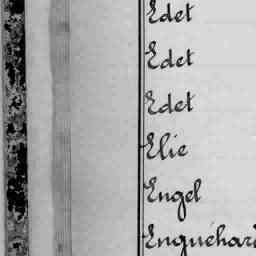 Edet
Edet
Edet
Elie
Engel
Enguehard